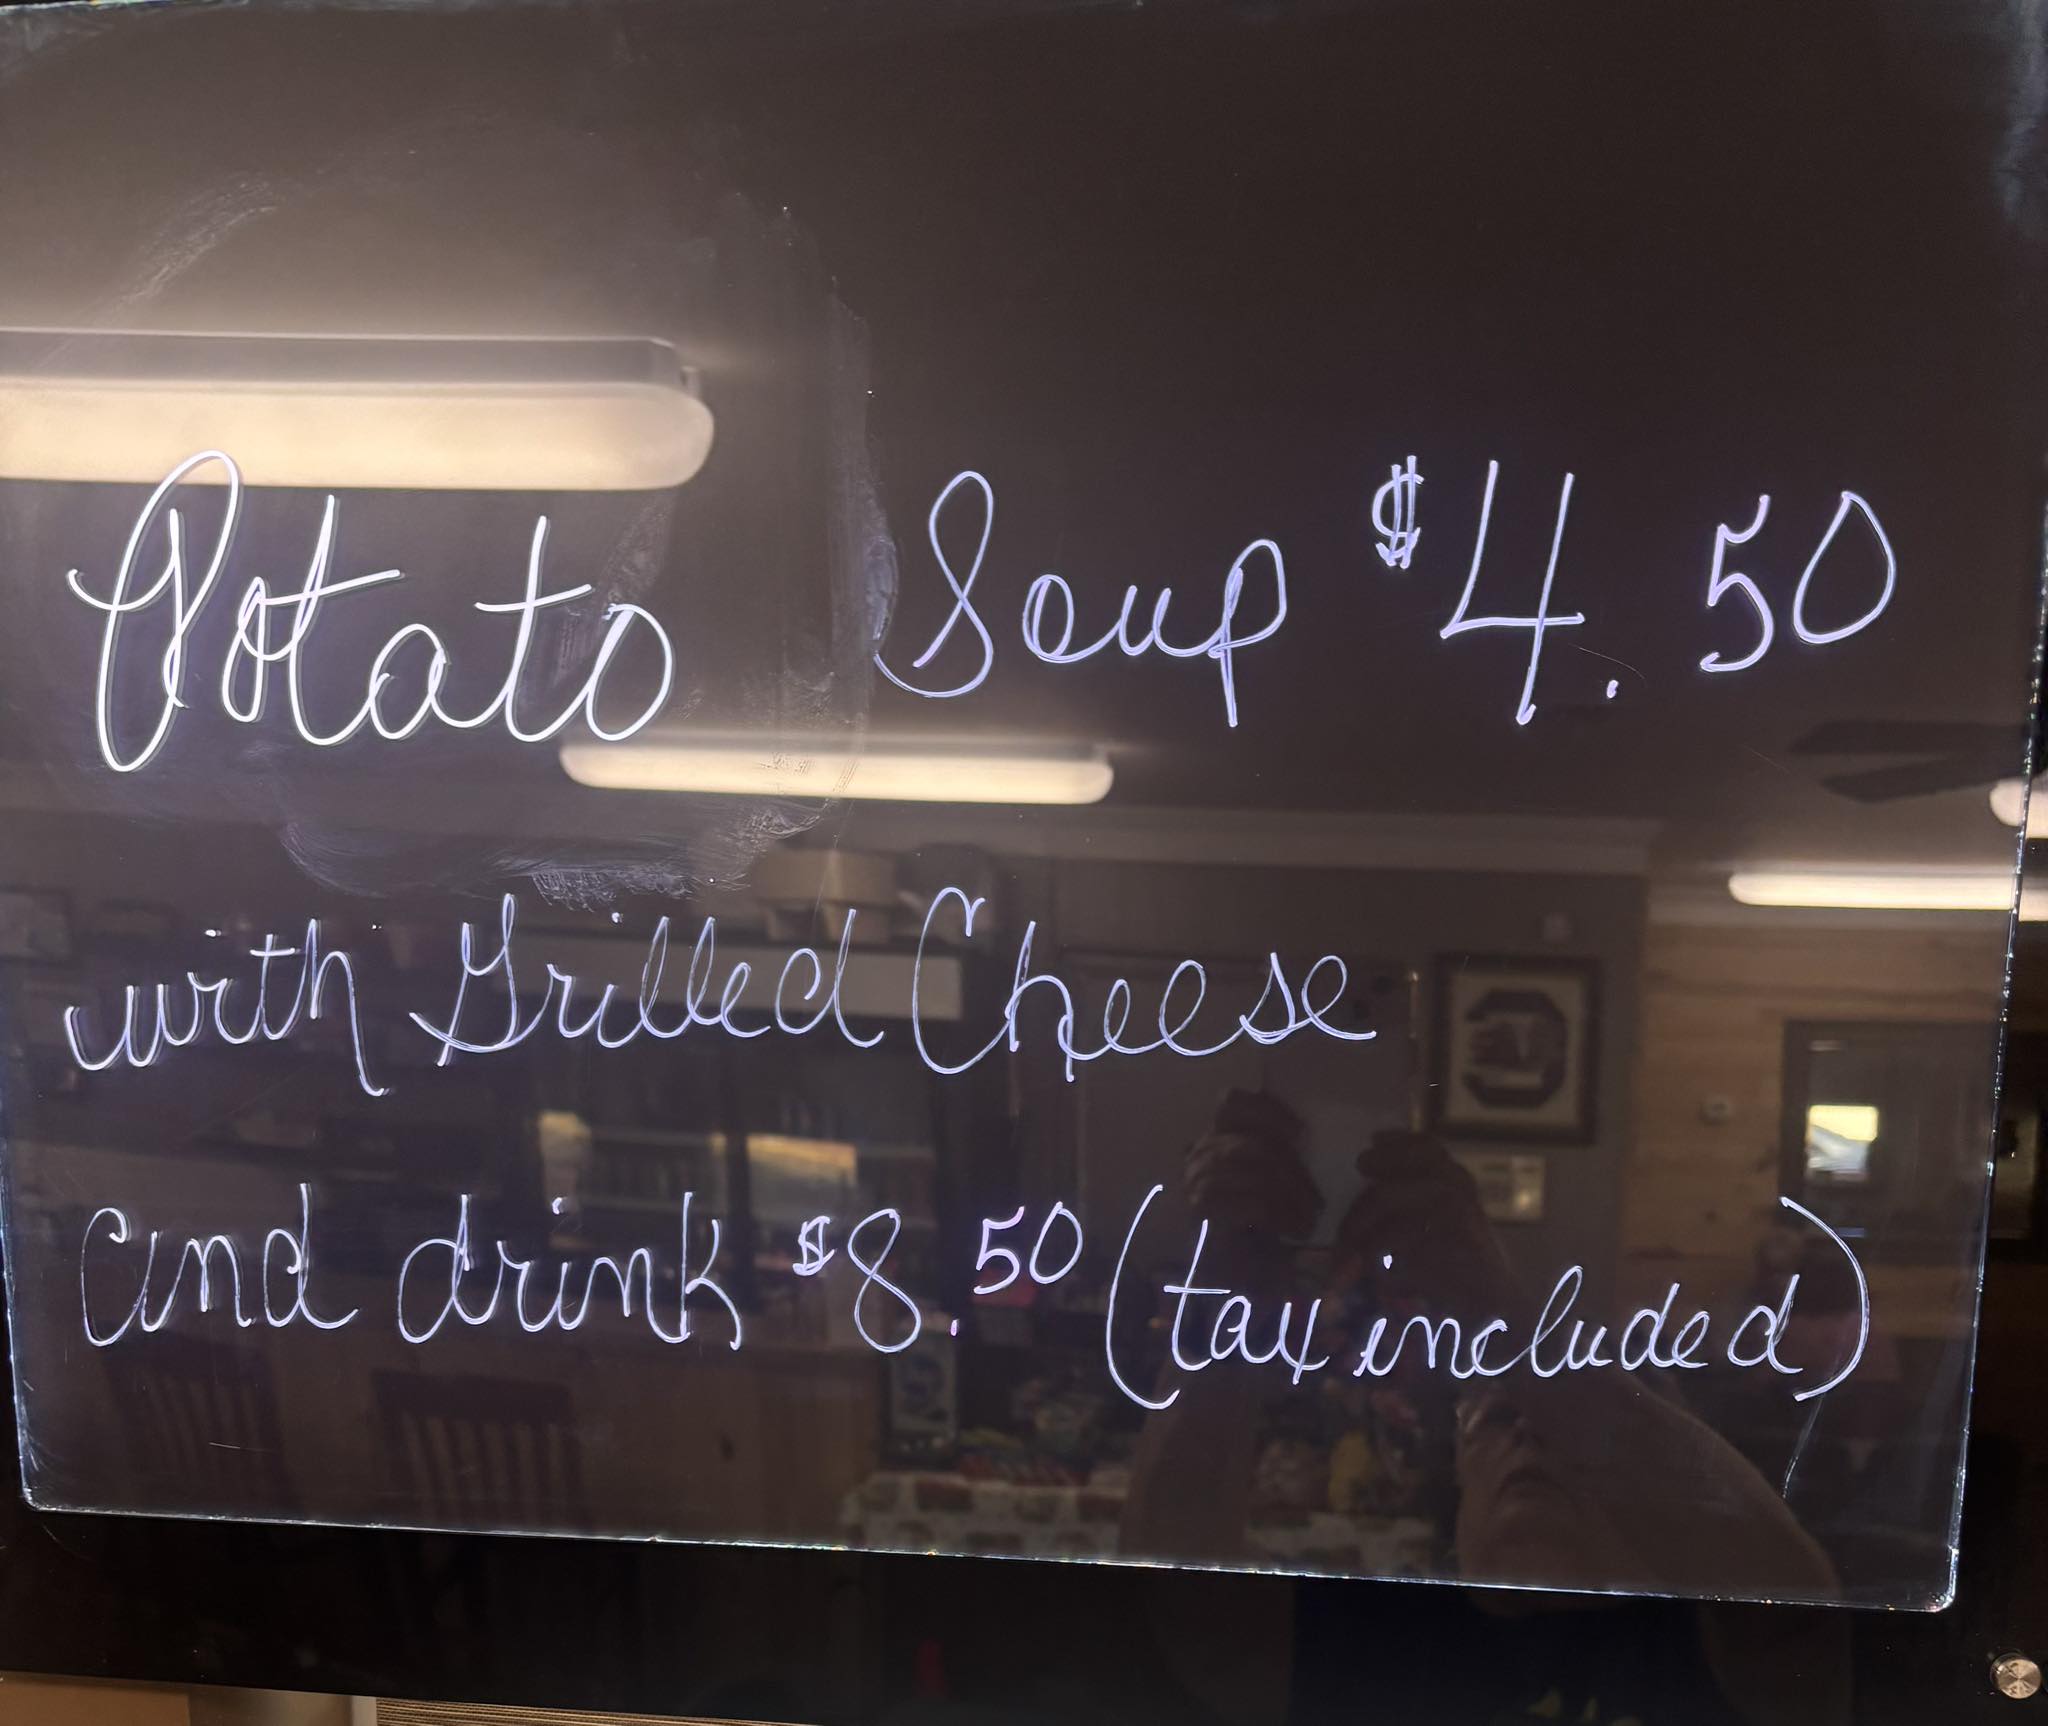 Potato Soup $4.50
with Grilled Cheese
and drink $8.50 (tax included)